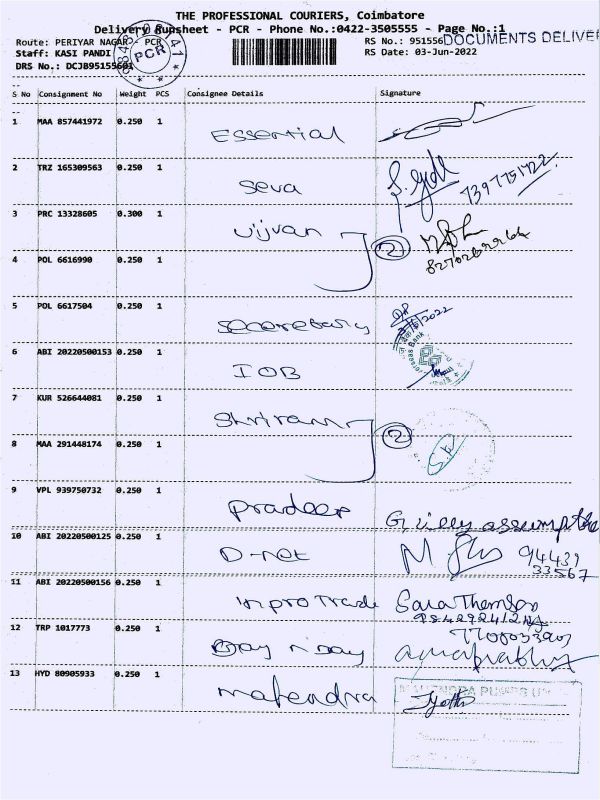 THE PROFESSIONAL COURIERS, Coimbatore
Delivery Runsheet - PCR - Phone No.:0422-3505555 - Page No.:1
Route: PERIYAR NAGAR - PCR
RS No.: 951556
DOCUMENTS DELIVER
Staff: KASI PANDI
RS Date: 03-Jun-2022
DRS No.: DCJB95155601
PCR
S No Consignment No Weight PCS Consignee Details Signature
1 MAA 857441972 0.250 1 Essential
2 TRZ 165309563 0.250 1 Seva
3 PRC 13328605 0.300 1 vijvan 2
4 POL 6616990 0.250 1
5 POL 6617504 0.250 1 secoretary
6 ABI 20220500153 0.250 1 IOB
7 KUR 526644081 0.250 1 Shriram 2
8 MAA 291448174 0.250 1
9 VPL 939750732 0.250 1 pradeep
10 ABI 20220500125 0.250 1 D-net 94439
33567
11 ABI 20220500156 0.250 1 inpro Trade
12 TRP 1017773 0.250 1
13 HYD 80905933 0.250 1 mahendra Jyothi
MAHENDRA PUMPS